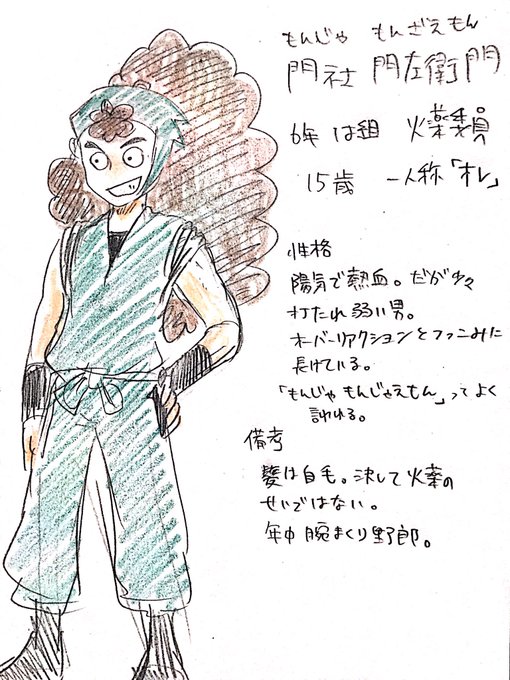 もんじゃ もんざえもん
門社 門左衛門
6年 は組 火薬委員
15歳 一人称「オレ」
性格
陽気で熱血。だが少々
打たれ弱い男。
オーバーリアクションとツッコみに
長けている。
「もんじゃ もんじゃえもん」ってよく
訛れる。
備考
髪は自毛。決して火薬の
せいではない。
年中腕まくり野郎。